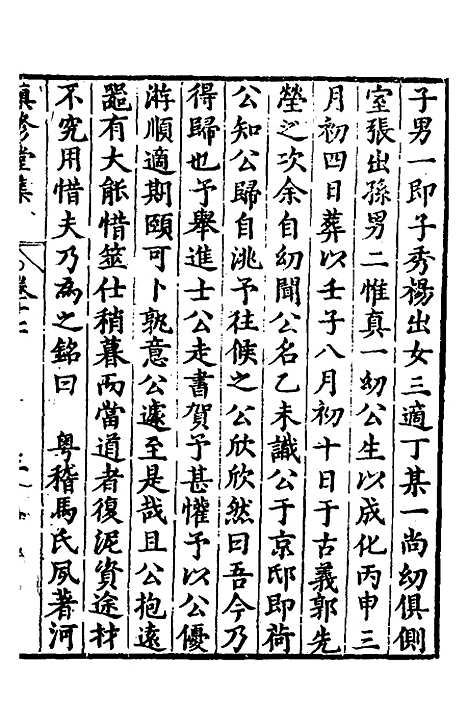 子男一即子秀楊出女三適丁某一尚幼俱側
室張出孫男二惟真一幼公生以成化丙申三
月初四日葬以壬子八月初十日于古義郭先
塋之次余自幼聞公名乙未識公于京邸即荷
公知公歸自洮予往候之公欣欣然曰吾今乃
得歸也予舉進士公走書賀予甚懽予以公優
游順適期頤可卜孰意公遽至是哉且公抱遠
噐有大能惜筮仕稍暮而當道者復泥資途材
不究用惜夫乃為之銘曰　粵稽馬氏夙著河